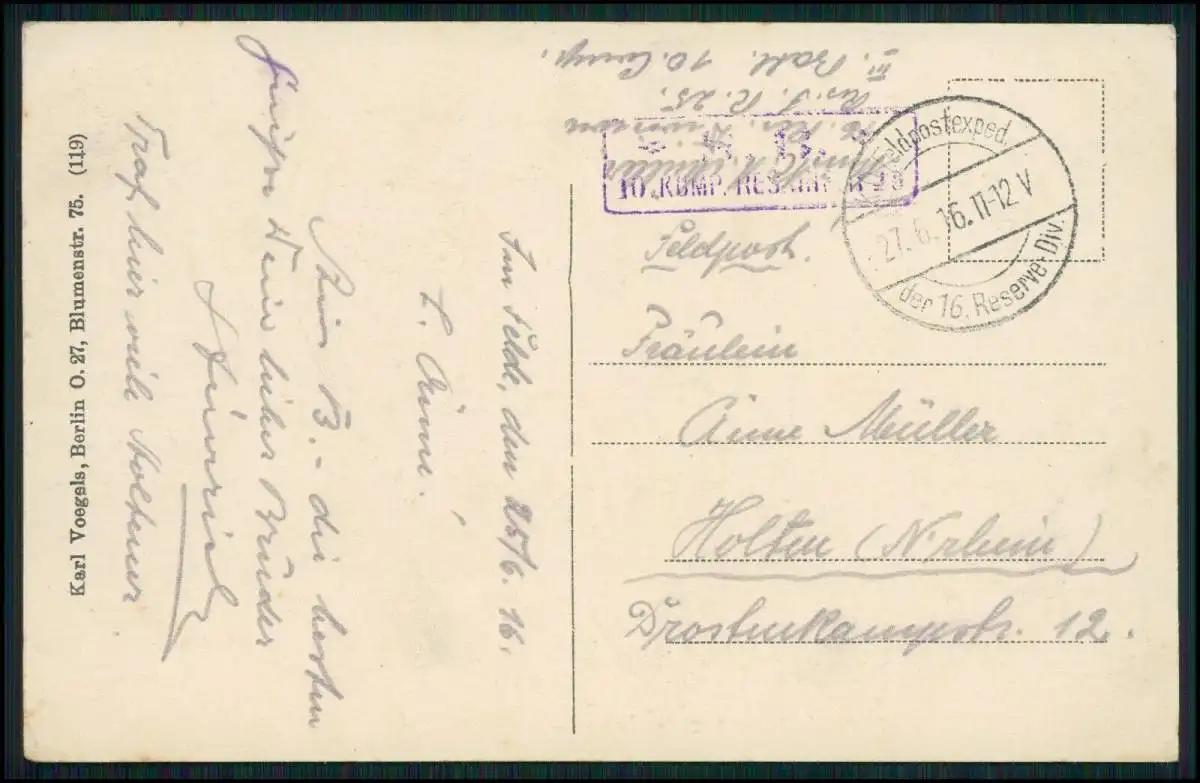 Im Felde, den 25/6. 16.
L. Änne!
Aus B. - die besten
Grüße Dein lieber Bruder
Heinrich
Traf hier viele Holtener
Karl Voegels, Berlin O. 27, Blumenstr. 75. (119)
16. Res. Division
Res. I. R. 25.
III. Batl. 10. Comp.
10. KOMP. RES.
K.D. Feldpostexped.
27.6.16.11-12 V
der 16. Reserve-Div.
Feldpost.
Fräulein
Änne Müller
Holten (N'rhein)
Drostenkampstr. 12.